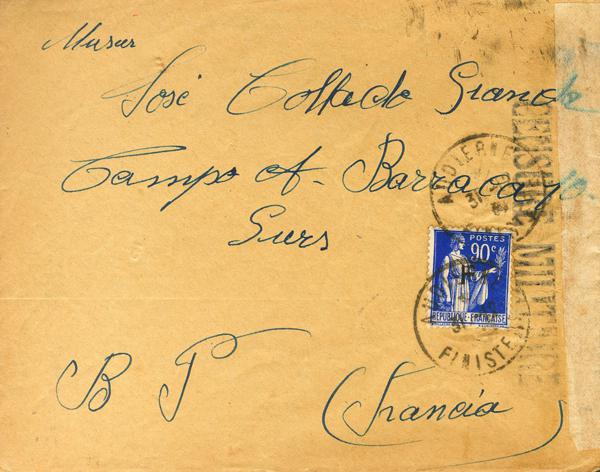 Musur
José Collado Grande
Campo A- Barraca 70.
Gurs
B P (Francia)
POSTES
90c
F
REPUBLIQUE-FRANÇAISE
AUDIERNE
31
FINISTERE
CENSURE MILITAIRE